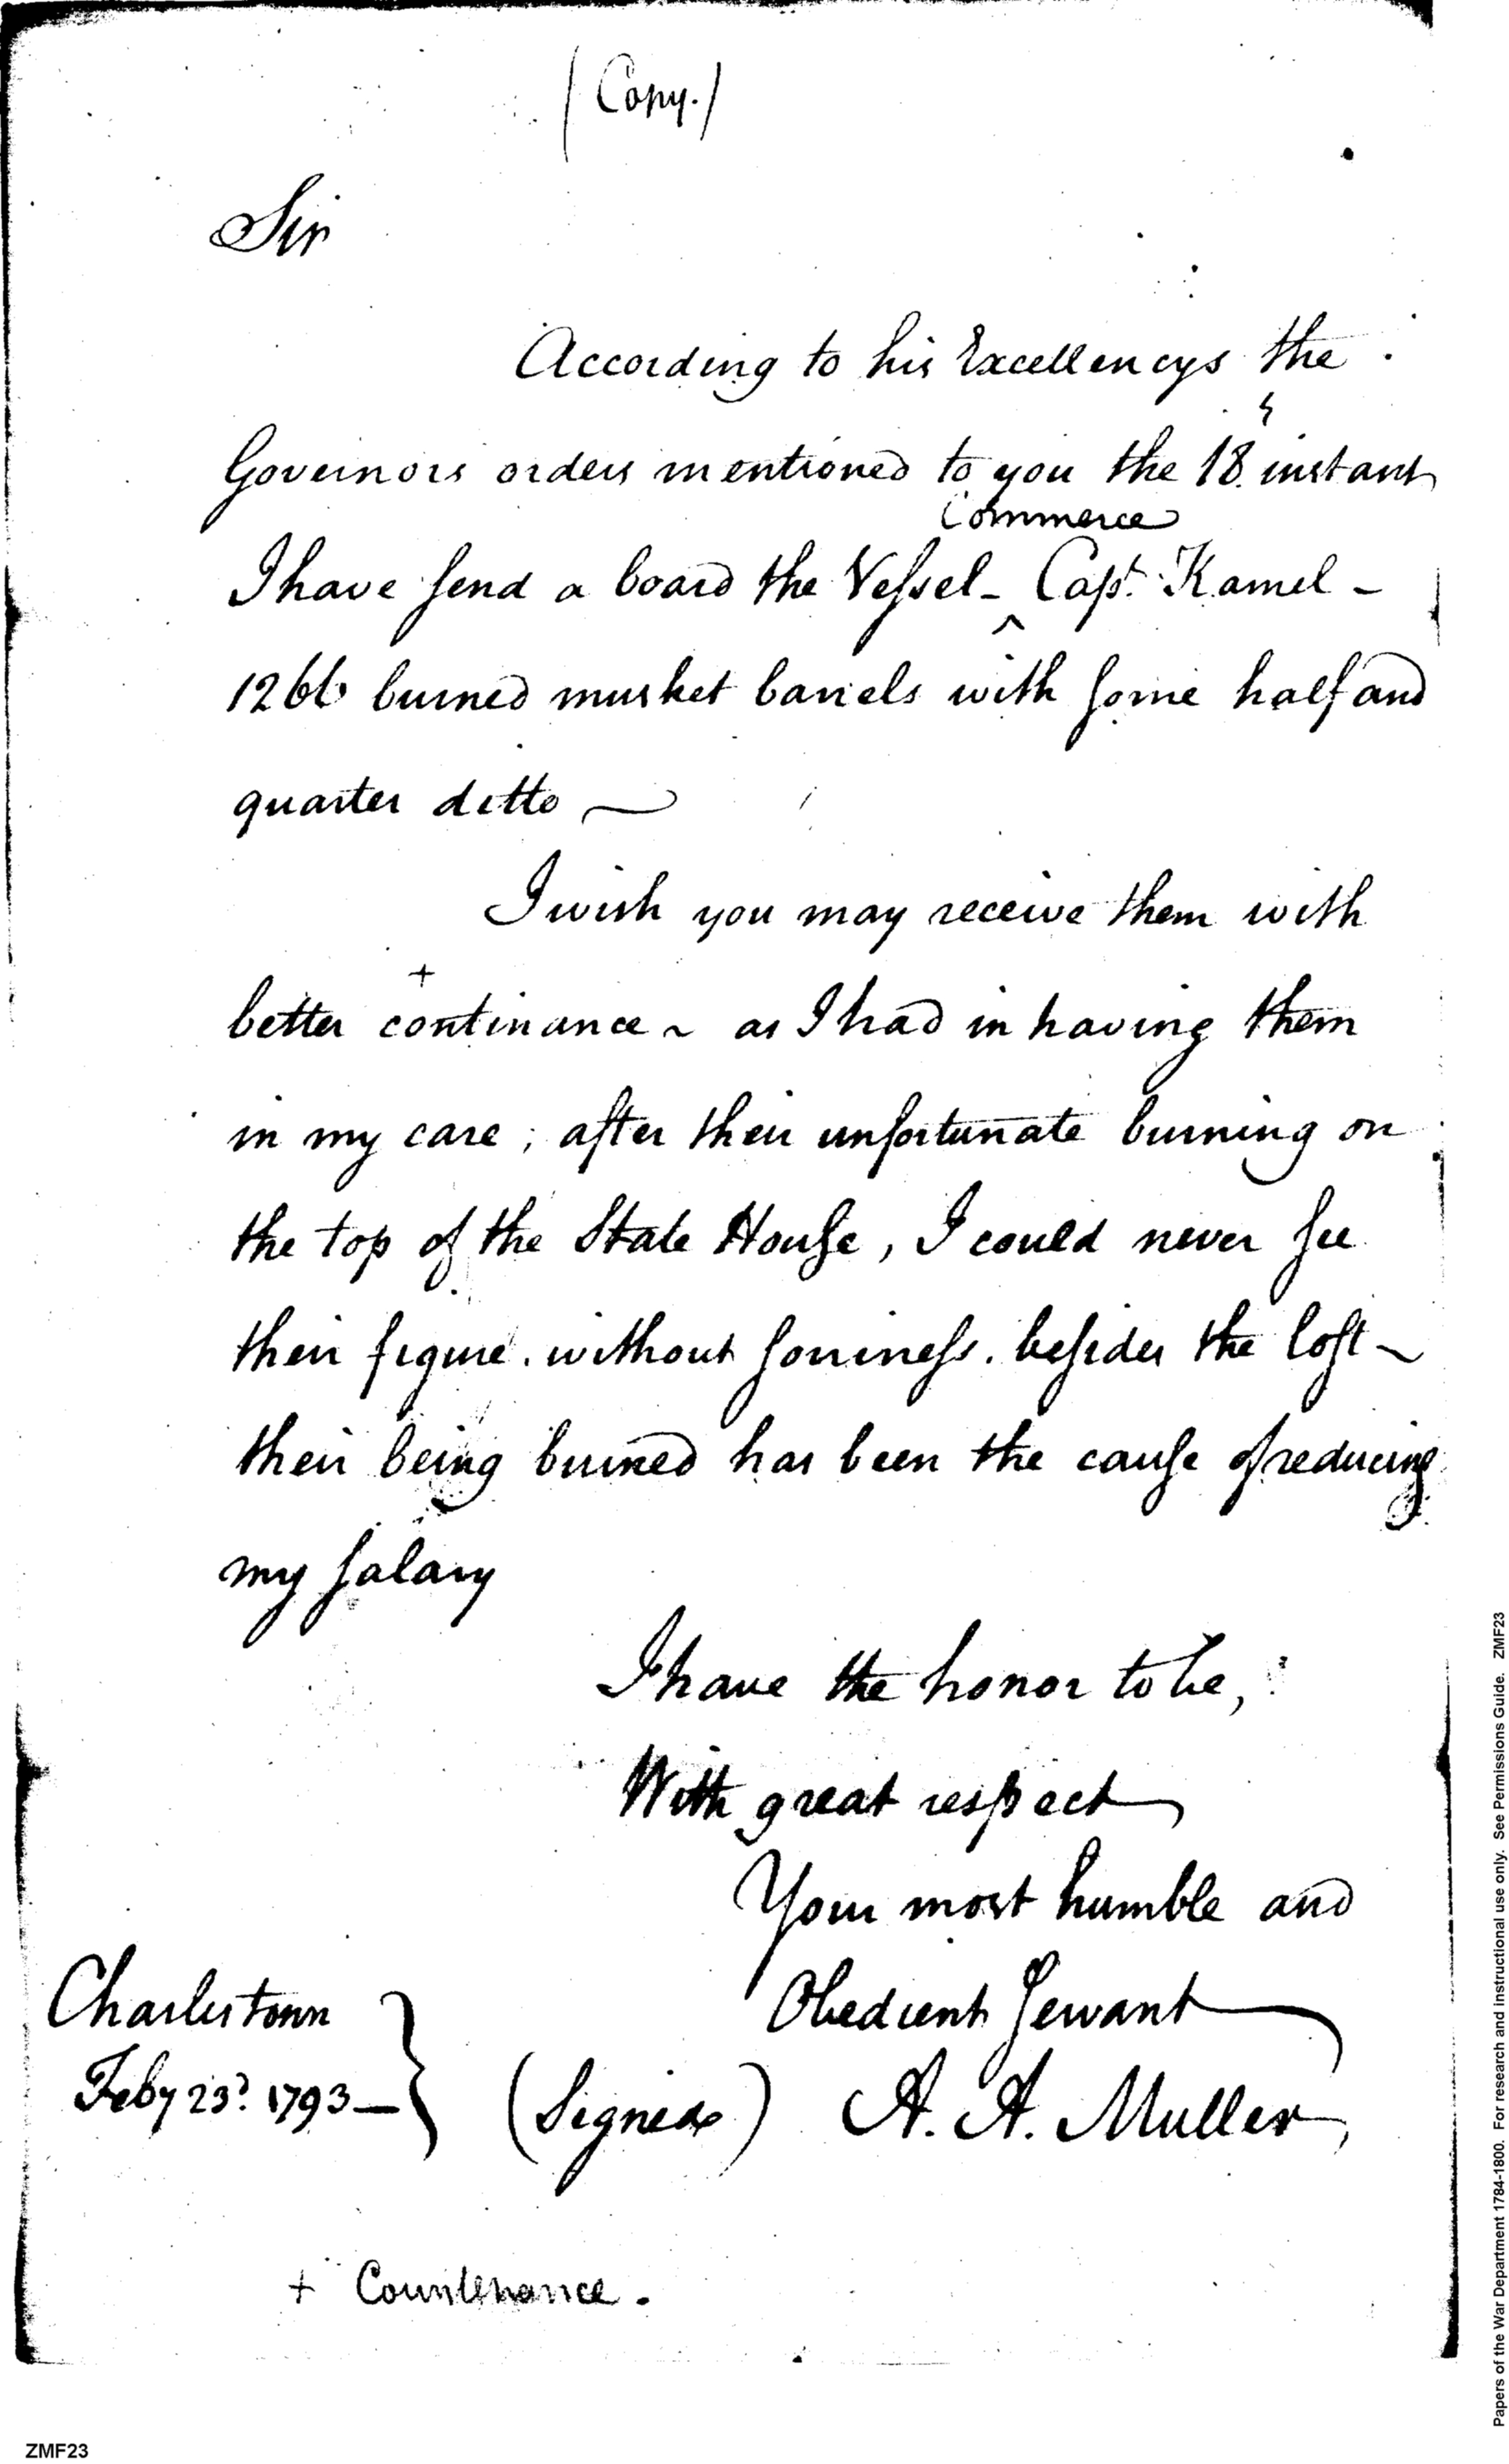 (Copy.)
Sir
According to his Excellencys the
Governors orders mentioned to you the 18 instant
Commerce
I have send a board the Vessel - ^ Capt. Kamel -
1266 burned musket barrels with some half and
quarter ditto
I wish you may receive them with
+
better continance ~ as I had in having them
in my care; after their unfortunate burning on
the top of the State House, I could never see
their figure. without sorriness. besides the lost ~
their being burned has been the cause of reducing
my salary
I have the honor to be,
With great respect
Your most humble and
Obedient Servant
Charlestown
Feby 23d. 1793 -
(Signed) A. A. Muller,
+ Countenance.
ZMF23
Papers of the War Department 1784-1800. For research and instructional use only. See Permissions Guide. ZMF23